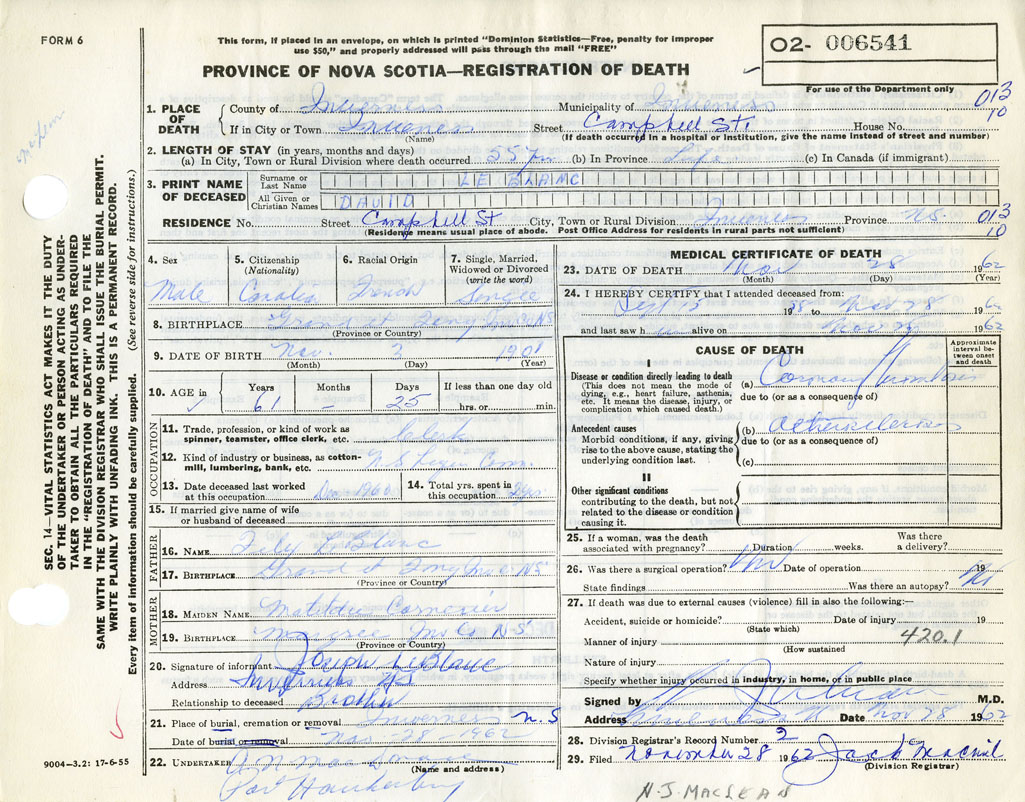 FORM 6
This form, if placed in an envelope, on which is printed "Dominion Statistics—Free, penalty for improper
use $50," and properly addressed will pass through the mail "FREE"
O2- 006541
PROVINCE OF NOVA SCOTIA—REGISTRATION OF DEATH
For use of the Department only
SEC. 14—VITAL STATISTICS ACT MAKES IT THE DUTY
OF THE UNDERTAKER OR PERSON ACTING AS UNDER-
TAKER TO OBTAIN ALL THE PARTICULARS REQUIRED
IN THE "REGISTRATION OF DEATH" AND TO FILE THE
SAME WITH THE DIVISION REGISTRAR WHO SHALL ISSUE THE BURIAL PERMIT.
WRITE PLAINLY WITH UNFADING INK. THIS IS A PERMANENT RECORD.
Every item of information should be carefully supplied. (See reverse side for instructions.)
1. PLACE OF DEATH County of Inverness Municipality of Inverness 013
If in City or Town Inverness Street Campbell St House No. 10
(Name) (If death occurred in a hospital or institution, give the name instead of street and number)
2. LENGTH OF STAY (in years, months and days)
(a) In City, Town or Rural Division where death occurred 55 yrs (b) In Province Life (c) In Canada (if immigrant)
3. PRINT NAME OF DECEASED Surname or Last Name LE BLANC
All Given or Christian Names DAVID
RESIDENCE No. Street Campbell St City, Town or Rural Division Inverness Province N.S. 013
(Residence means usual place of abode. Post Office Address for residents in rural parts not sufficient) 10
4. Sex
5. Citizenship (Nationality)
6. Racial Origin
7. Single, Married, Widowed or Divorced (write the word)
Male French Single
8. BIRTHPLACE N.S.
(Province or Country)
9. DATE OF BIRTH Nov. 3 1901
(Month) (Day) (Year)
10. AGE in Years Months Days If less than one day old
61 - 25 hrs. or min.
OCCUPATION
11. Trade, profession, or kind of work as spinner, teamster, office clerk, etc. Clerk
12. Kind of industry or business, as cotton-mill, lumbering, bank, etc. N.S. Liquor Comm.
13. Date deceased last worked at this occupation Dec 1960
14. Total yrs. spent in this occupation yrs
15. If married give name of wife or husband of deceased
FATHER
16. NAME LeBlanc
17. BIRTHPLACE N.S.
(Province or Country)
MOTHER
18. MAIDEN NAME
19. BIRTHPLACE Margaree Inv Co N-S
(Province or Country)
20. Signature of informant Joseph LeBlanc
Address Inverness NS
Relationship to deceased Brother
21. Place of burial, cremation or removal Inverness N.S
Date of burial or removal Nov-28-1962
22. UNDERTAKER
(Name and address)
Port Hawkesbury
9004-3.2: 17-6-55
MEDICAL CERTIFICATE OF DEATH
23. DATE OF DEATH Nov 28 1962
(Month) (Day) (Year)
24. I HEREBY CERTIFY that I attended deceased from:
Sept 19 to Nov. 28 196
and last saw h alive on Nov 1962
CAUSE OF DEATH
Approximate interval between onset and death
I
Disease or condition directly leading to death
(This does not mean the mode of dying, e.g., heart failure, asthenia, etc. It means the disease, injury, or complication which caused death.)
(a) Coronary Thrombosis
due to (or as a consequence of)
Antecedent causes
Morbid conditions, if any, giving rise to the above cause, stating the underlying condition last.
(b)
due to (or as a consequence of)
(c)
II
Other significant conditions
contributing to the death, but not related to the disease or condition causing it.
25. If a woman, was the death associated with pregnancy? Duration weeks. Was there a delivery?
26. Was there a surgical operation? No Date of operation 19
State findings Was there an autopsy? No
27. If death was due to external causes (violence) fill in also the following:—
Accident, suicide or homicide? Date of injury 19
(State which)
Manner of injury 420.1
(How sustained
Nature of injury
Specify whether injury occurred in industry, in home, or in public place
Signed by M.D.
Address Inverness Date Nov 28 1962
28. Division Registrar's Record Number 2
29. Filed November 28 1962 Jack MacNeil
(Division Registrar)
N.J. MACLEAN